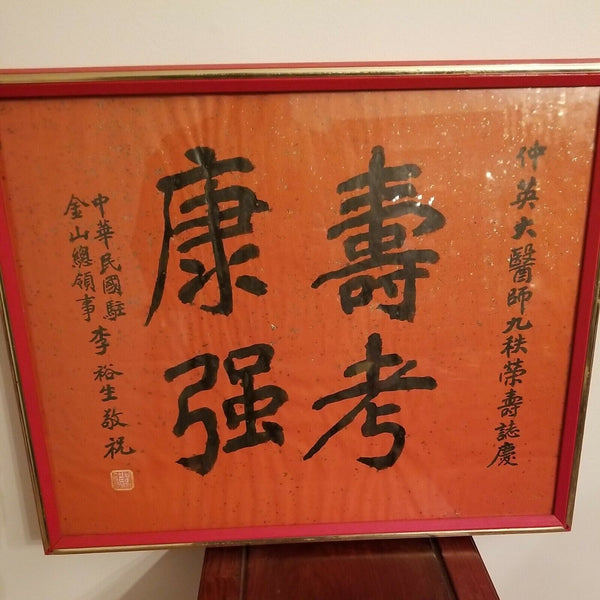 仲英大醫師九秩榮壽誌慶
壽考
康强
中華民國駐
金山總領事李裕生敬祝